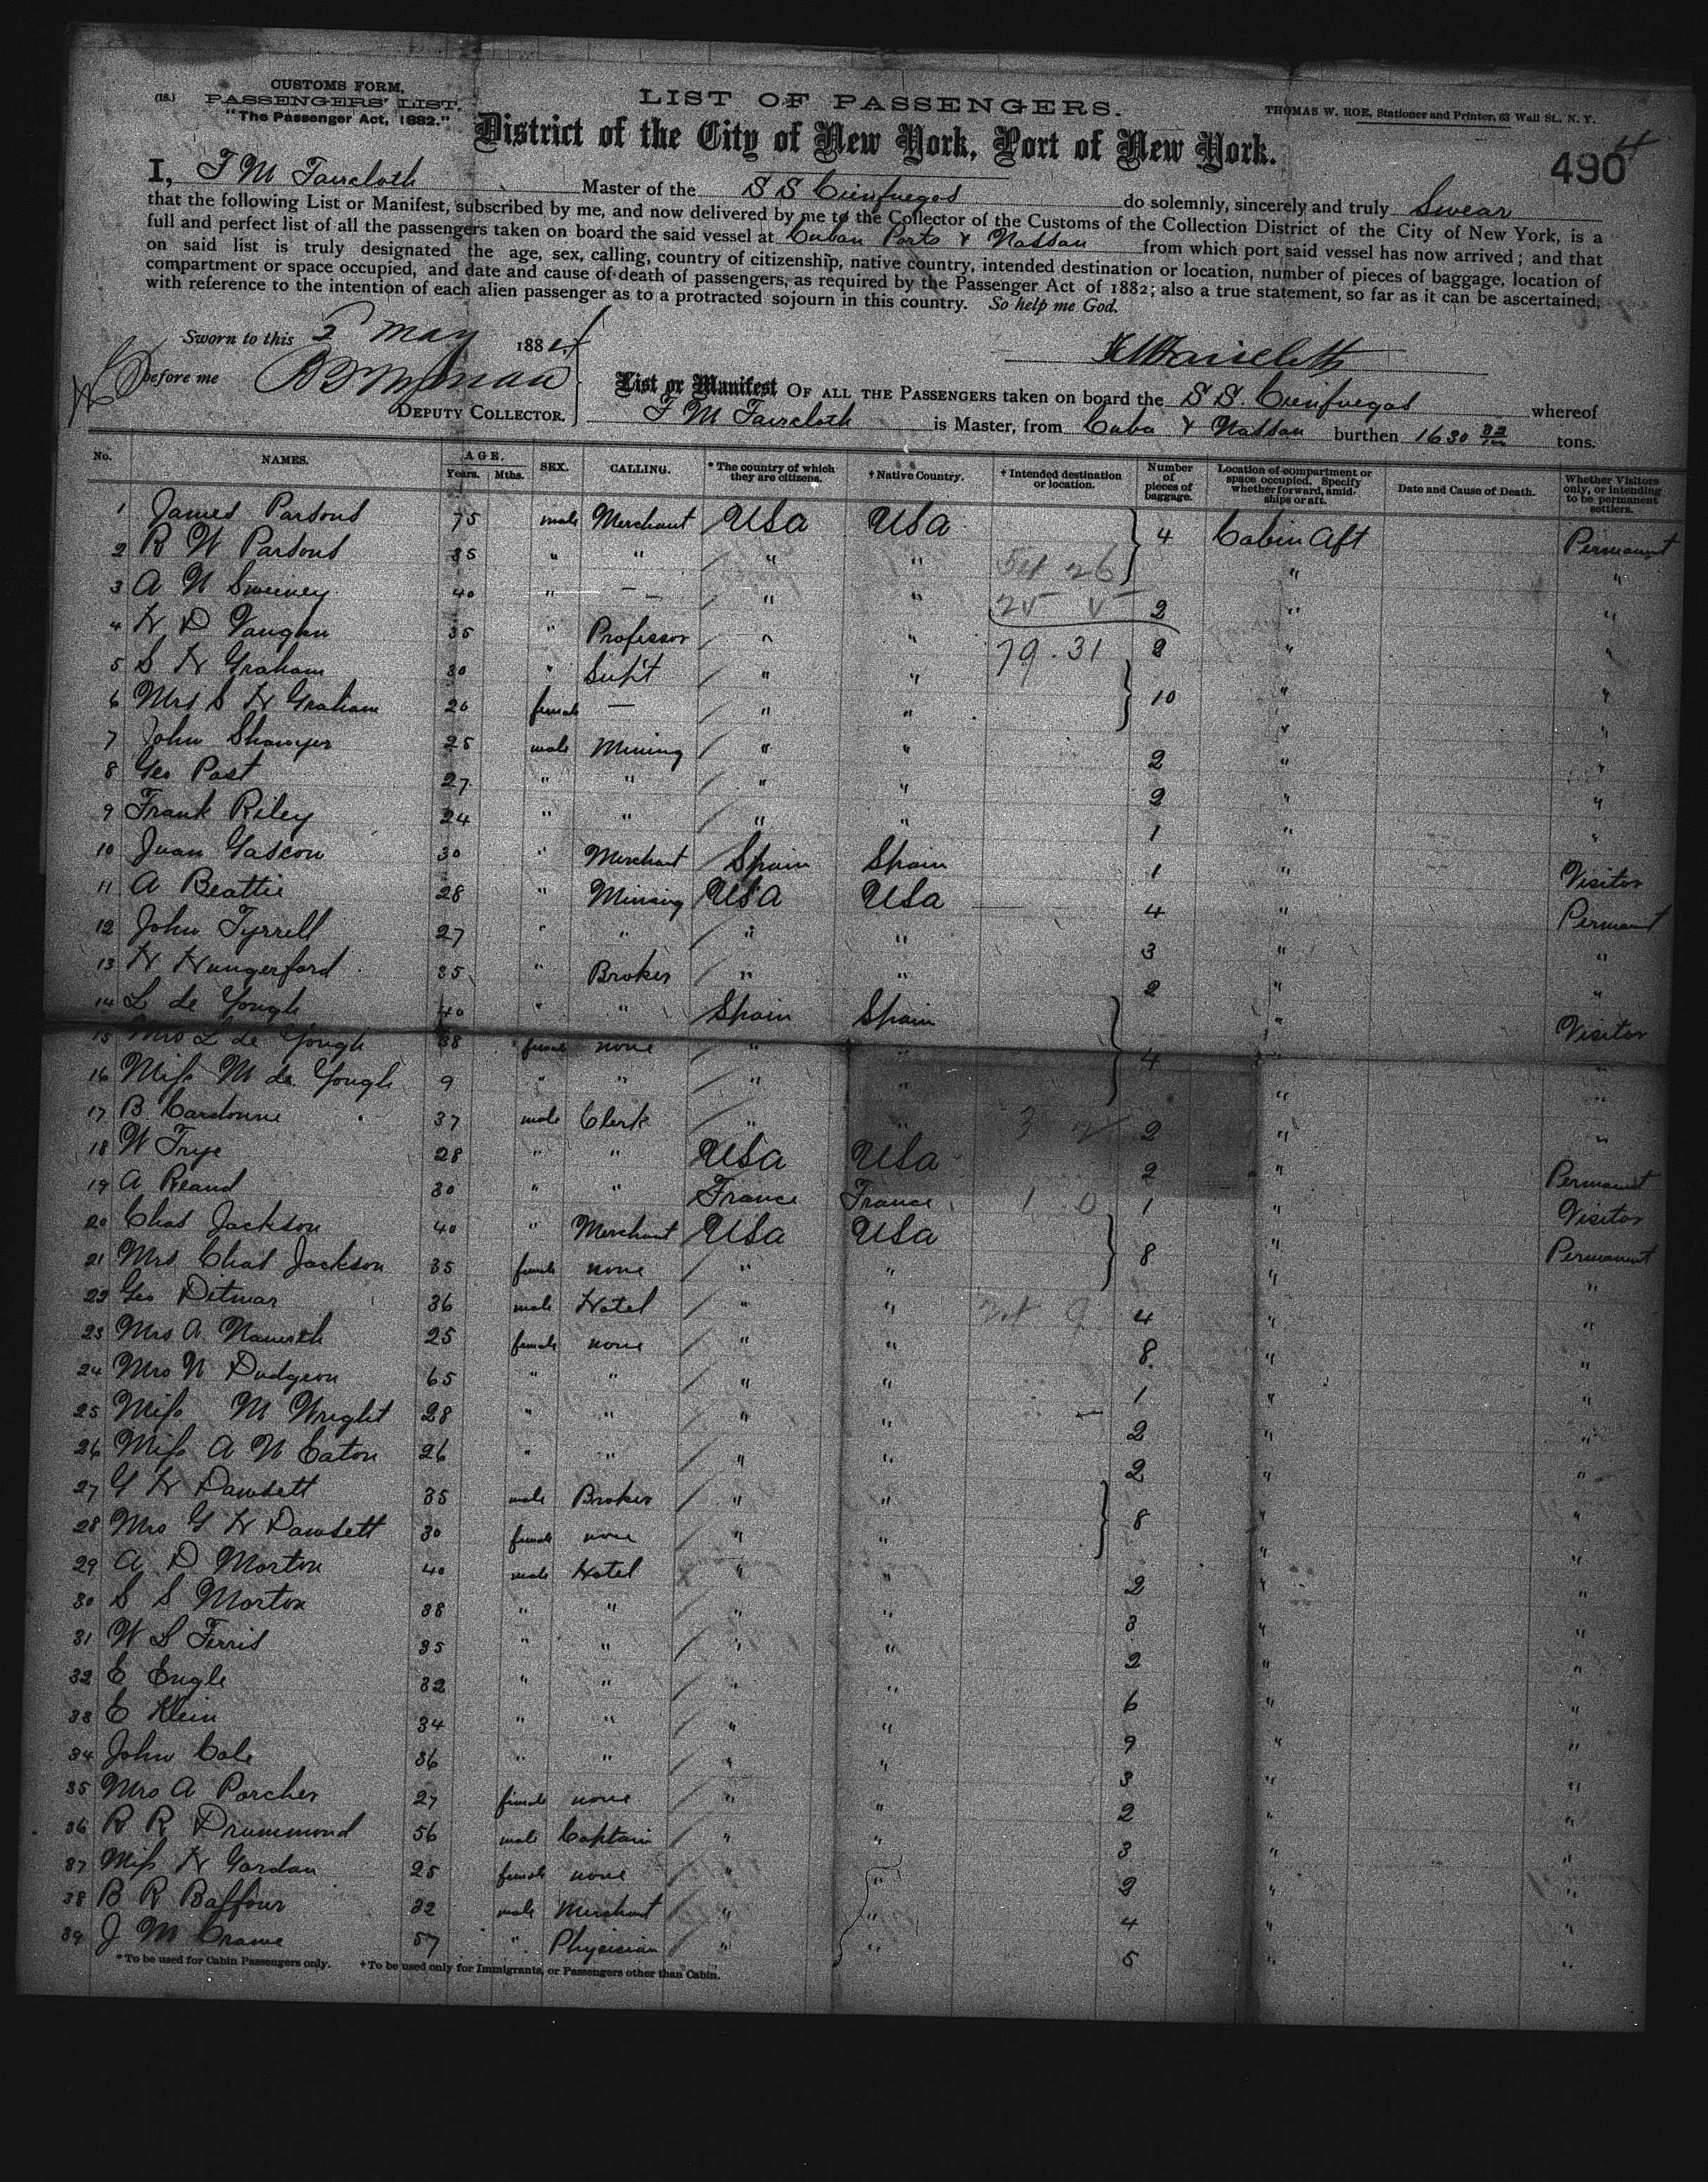 CUSTOMS FORM,
(18.) PASSENGERS' LIST.
"The Passenger Act, 1882."
LIST OF PASSENGERS.
THOMAS W. ROE, Stationer and Printer, 63 Wall St., N. Y.
District of the City of New York, Port of New York.
490
I, F M Faircloth Master of the S S Cienfuegos do solemnly, sincerely and truly Swear
that the following List or Manifest, subscribed by me, and now delivered by me to the Collector of the Customs of the Collection District of the City of New York, is a
full and perfect list of all the passengers taken on board the said vessel at Cuban Ports & Nassau from which port said vessel has now arrived; and that
on said list is truly designated the age, sex, calling, country of citizenship, native country, intended destination or location, number of pieces of baggage, location of
compartment or space occupied, and date and cause of death of passengers, as required by the Passenger Act of 1882; also a true statement, so far as it can be ascertained,
with reference to the intention of each alien passenger as to a protracted sojourn in this country. So help me God.
Sworn to this 2 May 1884
F M Faircloth
before me
DEPUTY COLLECTOR.
List or Manifest OF ALL THE PASSENGERS taken on board the S S. Cienfuegos whereof
F M Faircloth is Master, from Cuba & Nassau burthen 1630 82/100 tons.
No. NAMES. AGE. Years. Mths. SEX. CALLING. * The country of which they are citizens. † Native Country. † Intended destination or location. Number of pieces of baggage. Location of compartment or space occupied. Specify whether forward, amidships or aft. Date and Cause of Death. Whether Visitors only, or intending to be permanent settlers.
1 James Parsons 75 male Merchant USa USa 4 Cabin Aft Permanent
2 R W Parsons 35 " " " " 54 26 " "
3 A N Sweeney 40 " — " " 25 5 2 " "
4 H D Vaughn 35 " Professor " " 79. 31 2 " "
5 S H Graham 30 " Supt " " 10 " "
6 Mrs S H Graham 26 female — " " " "
7 John Shawyer 25 male Mining " " 2 " "
8 Geo Post 27 " " " " 2 " "
9 Frank Riley 24 " " " " 1 " "
10 Juan Gascon 30 " Merchant Spain Spain 1 " Visitor
11 A Beattie 28 " Mining USA USa 4 " Permant
12 John Tyrrell 27 " " " " 3 " "
13 H Hungerford 35 " Broker " " 2 " "
14 L de Yongh 40 " " Spain Spain " Visitor
15 Mrs L de Yongh 38 female none " " 4 " "
16 Miss M de Yongh 9 " " " " " "
17 B Cardonne 37 male Clerk " " 3 2 2 " "
18 W Frye 28 " " USa USa 2 " Permanent
19 A Reaud 30 " " France France 1 0 1 " Visitor
20 Chas Jackson 40 " Merchant USa USa 8 " Permanent
21 Mrs Chas Jackson 35 female none " " " "
22 Geo Ditmar 36 male Hotel " " 4 " "
23 Mrs A 25 female none " " 8 " "
24 Mrs N Dudgeon 65 " " " " 1 " "
25 Miss M Wright 28 " " " " 2 " "
26 Miss A N Eaton 26 " " " " 2 " "
27 G H Dawsett 35 male Broker " " 8 " "
28 Mrs G H Dawsett 30 female none " " " "
29 A D Morton 40 male Hotel " " 2 " "
30 S S Morton 38 " " " " 3 " "
31 W S Ferris 35 " " " " 2 " "
32 E Engle 32 " " " " 6 " "
33 E Klein 34 " " " " 9 " "
34 John Cole 36 " " " " 3 " "
35 Mrs A Porcher 27 female none " " 2 " "
36 R R Drummond 56 male Captain " " 3 " "
37 Miss H Gordan 25 female none " " 2 " "
38 B R Balfour 32 male Merchant " " 4 " "
39 J M Crane 57 " Physician " " 5 " "
* To be used for Cabin Passengers only. † To be used only for Immigrants, or Passengers other than Cabin.